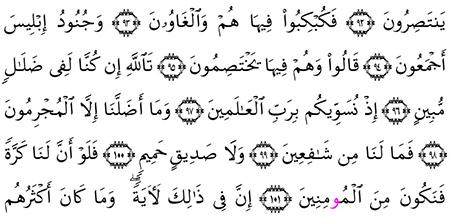 يَنتَصِرُونَ ۝٩٣ فَكُبْكِبُوا۟ فِيهَا هُمْ وَٱلْغَاوُۥنَ ۝٩٤ وَجُنُودُ إِبْلِيسَ
أَجْمَعُونَ ۝٩٤ قَالُوا۟ وَهُمْ فِيهَا يَخْتَصِمُونَ ۝٩٥ تَٱللَّهِ إِن كُنَّا لَفِى ضَلَـٰلٍ
مُّبِينٍ ۝٩٦ إِذْ نُسَوِّيكُم بِرَبِّ ٱلْعَـٰلَمِينَ ۝٩٧ وَمَا أَضَلَّنَا إِلَّا ٱلْمُجْرِمُونَ
۝٩٨ فَمَا لَنَا مِن شَـٰفِعِينَ ۝٩٩ وَلَا صَدِيقٍ حَمِيمٍ ۝١٠٠ فَلَوْ أَنَّ لَنَا كَرَّةً
فَنَكُونَ مِنَ ٱلْمُومِنِينَ ۝١٠١ إِنَّ فِى ذَٰلِكَ لَـَٔايَةً ۖ وَمَا كَانَ أَكْثَرُهُم